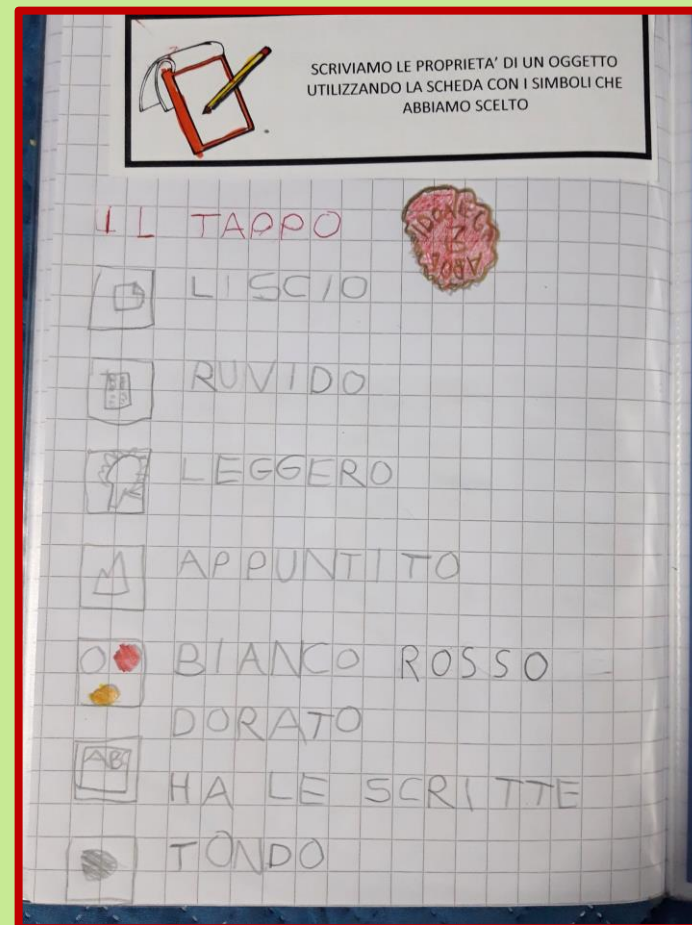 SCRIVIAMO LE PROPRIETA' DI UN OGGETTO
UTILIZZANDO LA SCHEDA CON I SIMBOLI CHE
ABBIAMO SCELTO
IL TAPPO
LISCIO
RUVIDO
LEGGERO
APPUNTITO
BIANCO ROSSO
DORATO
ABC
HA LE SCRITTE
TONDO